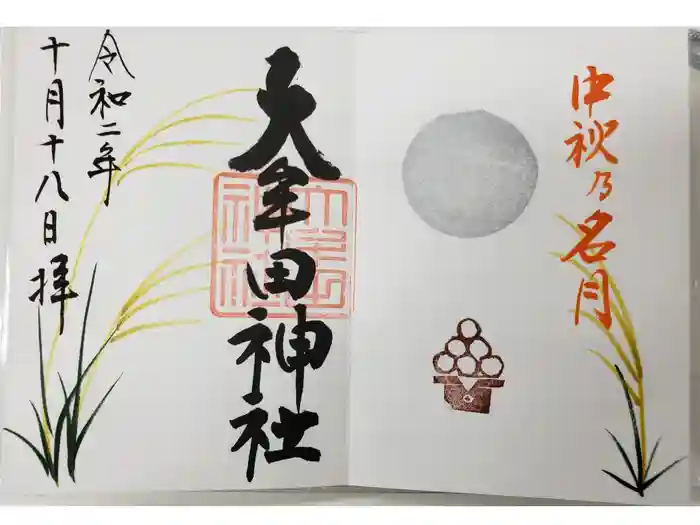 中秋乃名月
大牟田神社
大牟田
神社
令和二年
十月十八日 拝